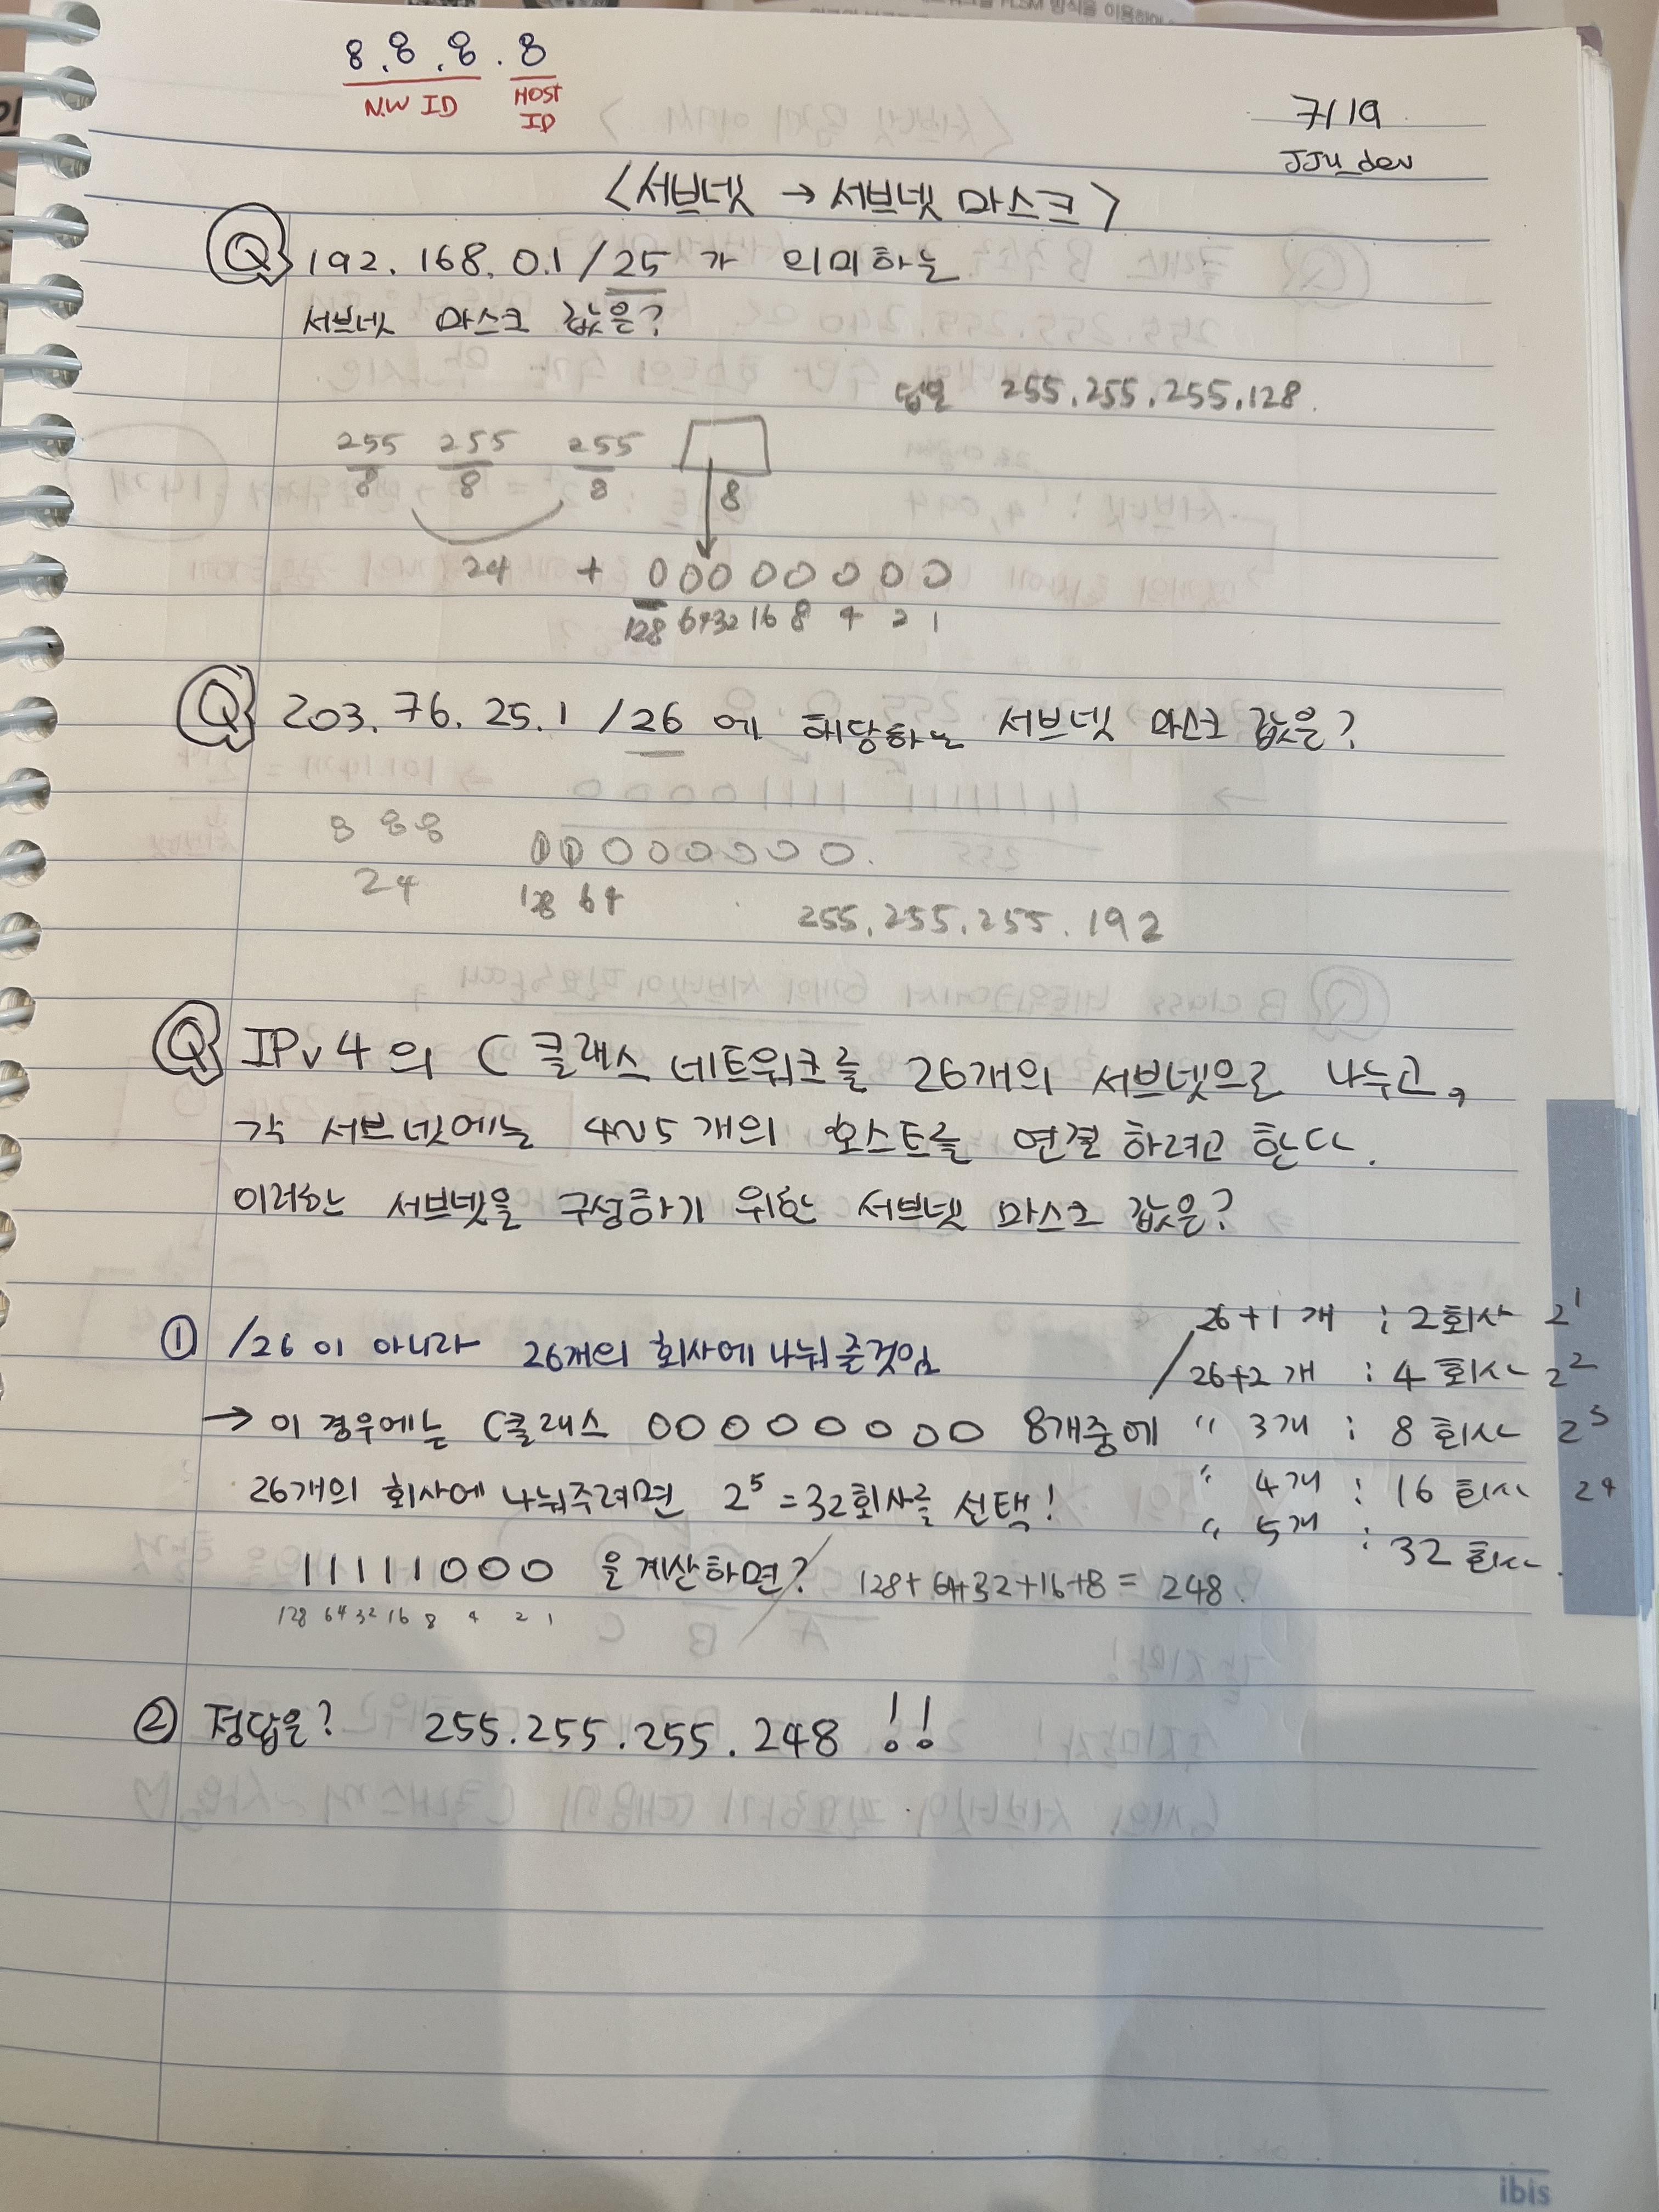 8.8.8.8
N.W ID HOST ID
7/19
JJu_dev
<서브넷 → 서브넷 마스크>
Q 192.168.0.1 /25 가 의미하는
서브넷 마스크 값은?
답은 255.255.255.128.
255 255 255
8 8 8 8
24 + 0 0 0 0 0 0 0 0
128 64 32 16 8 4 2 1
Q 203.76.25.1 /26 에 해당하는 서브넷 마스크 값은?
8 8 8
0 0 0 0 0 0 0 0.
24
128 64
255.255.255.192
Q IPv4의 C 클래스 네트워크를 26개의 서브넷으로 나누고,
각 서브넷에는 4~5개의 호스트를 연결 하려고 한다.
이러한 서브넷을 구성하기 위한 서브넷 마스크 값은?
① /26 이 아니라 26개의 회사에 나눠 줄것임
/26+1개 : 2회사 2^1
/26+2개 : 4회사 2^2
→ 이 경우에는 C클래스 0 0 0 0 0 0 0 0 8개중에
" 3개 : 8 회사 2^3
26개의 회사에 나눠주려면 2^5 = 32회사를 선택!
" 4개 : 16 회사 2^4
" 5개 : 32 회사.
11111000 을 계산하면? 128+64+32+16+8 = 248.
128 64 32 16 8 4 2 1
② 정답은? 255.255.255.248 !!
ibis